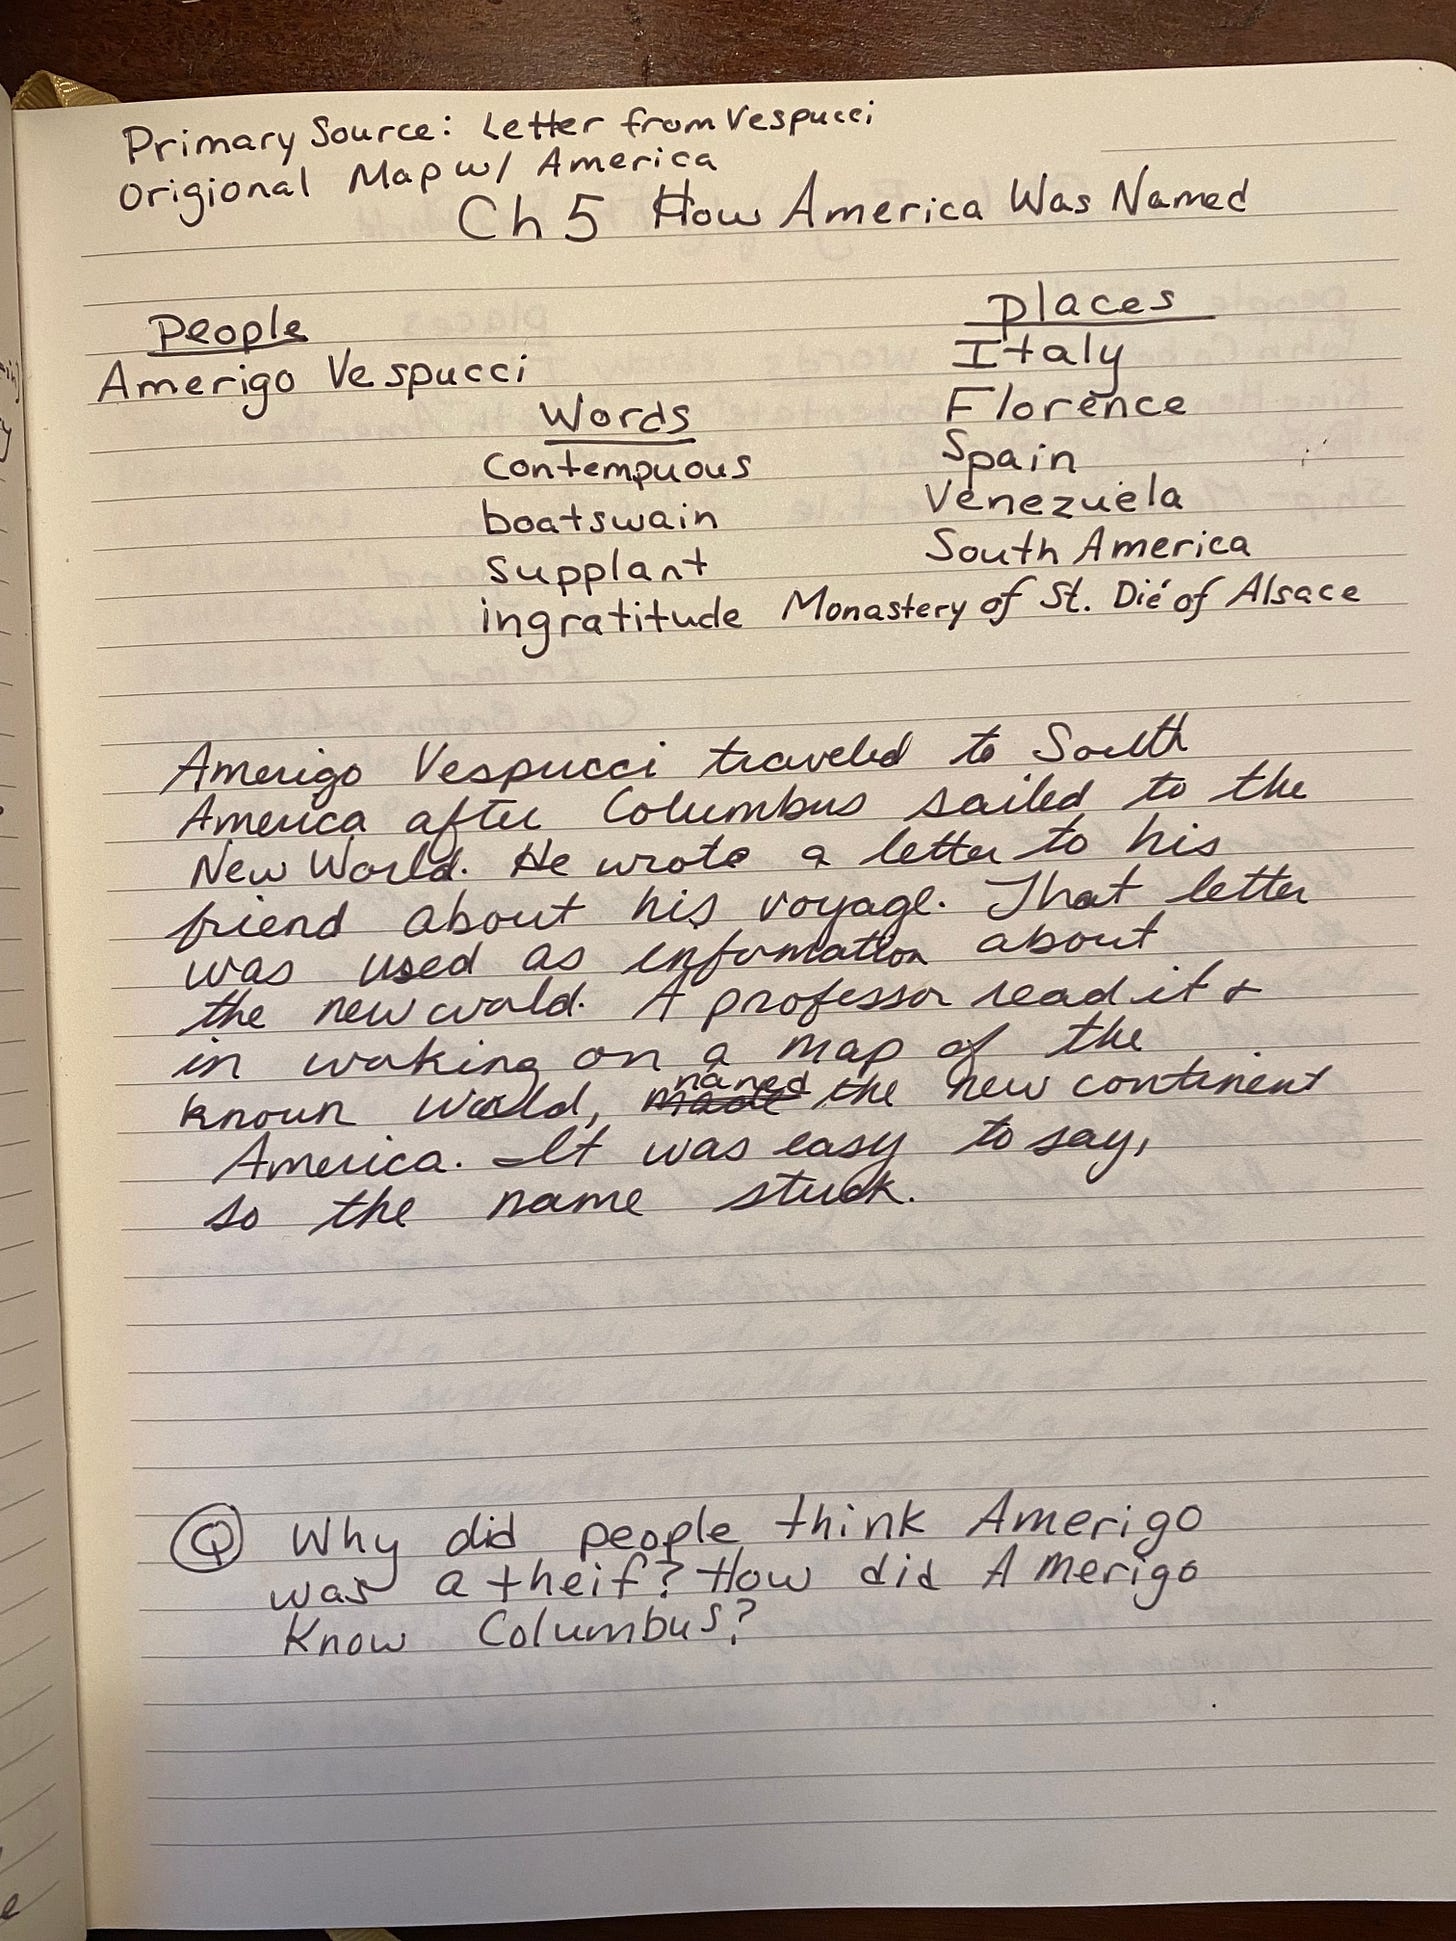 Primary Source: Letter from Vespucci
Origional Map w/ America
Ch 5 How America Was Named
People
Amerigo Vespucci
Words
contempuous
boatswain
supplant
ingratitude
Places
Italy
Florence
Spain
Venezuela
South America
Monastery of St. Dié of Alsace
Amerigo Vespucci traveled to South
America after Columbus sailed to the
New World. He wrote a letter to his
friend about his voyage. That letter
was used as information about
the new world. A professor read it &
in working on a map of the
known world, named the new continent
America. It was easy to say,
so the name stuck.
Q Why did people think Amerigo
was a theif? How did Amerigo
Know Columbus?